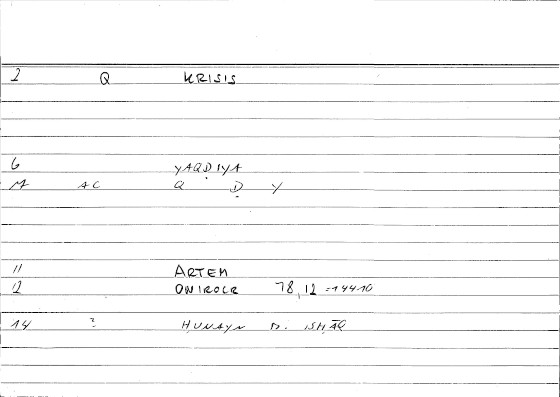 2 Q KRISIS
6 YAQḌIYA
M AC Q Ḍ Y
11 ARTEM
12 ONIROCR 78,12 = 14410
14 ? ḤUNAYN B. ISḤĀQ